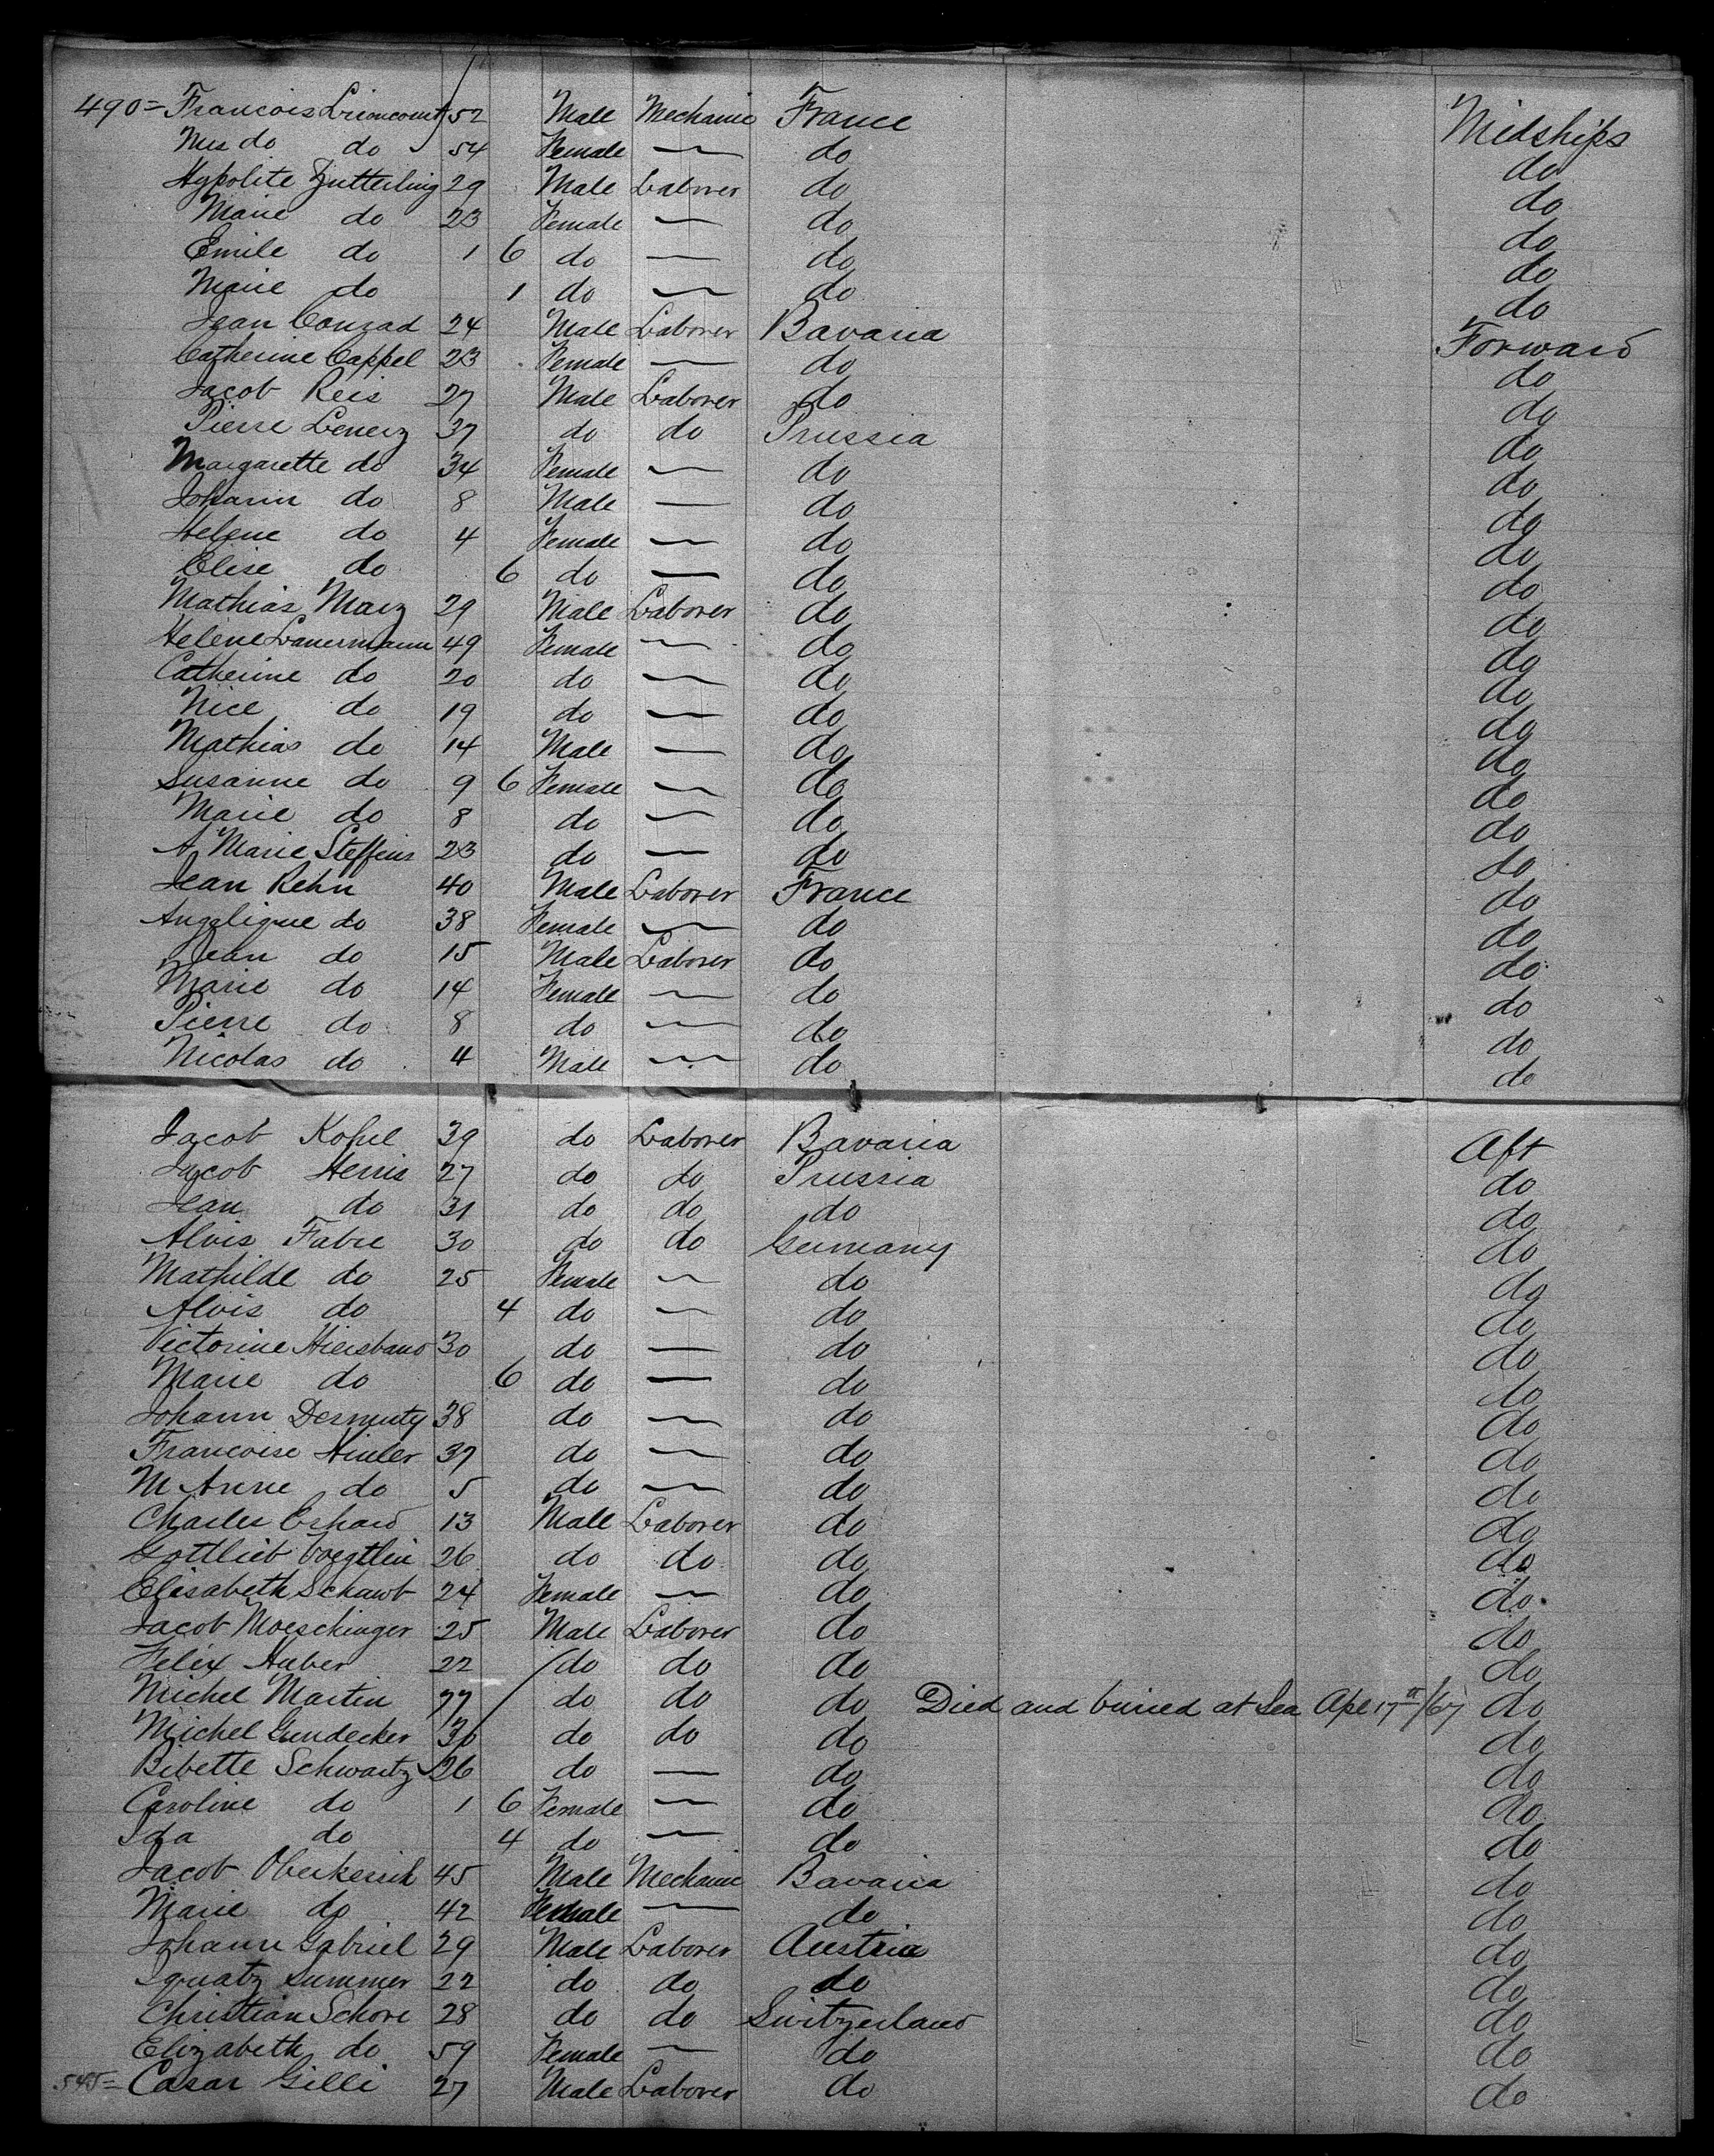 490= Francois Lrioncourt 52 Male Mechanic France Midships
Mrs do do 54 Female — do do
Hypolite Zutterling 29 Male Laborer do do
Marie do 23 Female — do do
Emile do 1 6 do — do do
Marie do 1 do — do do
Jean Conrad 24 Male Laborer Bavaria Forward
Catherine Cappel 23 Female — do do
Jacob Reis 27 Male Laborer do do
Pierre Lenerz 37 do do Prussia do
Margarette do 34 Female — do do
Johann do 8 Male — do do
Helene do 4 Female — do do
Elise do 6 do — do do
Mathias Marz 29 Male Laborer do do
Helene Lauermann 49 Female — do do
Catherine do 20 do — do do
Nice do 19 do — do do
Mathias do 14 Male — do do
Susanne do 9 6 Female — do do
Marie do 8 do — do do
A. Marie Steffens 23 do — do do
Jean Rehn 40 Male Laborer France do
Angelique do 38 Female — do do
Jean do 15 Male Laborer do do
Marie do 14 Female — do do
Pierre do 8 do — do do
Nicolas do 4 Male — do do
Jacob Kohel 39 do Laborer Bavaria Aft
Jacob Henis 27 do do Prussia do
Jean do 31 do do do do
Alois Fabre 30 do do Germany do
Mathilde do 25 Female — do do
Alois do 4 do — do do
Victorine 30 do — do do
Marie do 6 do — do do
Johann 38 do — do do
Francoise Hinler 37 do — do do
M Anne do 5 do — do do
Charles Erhard 13 Male Laborer do do
Gottlieb Voegtlin 26 do do do do
Elisabeth Schawb 24 Female — do do
Jacob Moeschinger 25 Male Laborer do do
Felix Huber 22 do do do do
Michel Martin 77 do do do Died and buried at Sea Apl 17th/67 do
Michel Gundecker 30 do do do do
Bibette Schwartz 26 do — do do
Caroline do 1 6 Female — do do
Ida do 4 do — do do
Jacob Oberkerich 45 Male Mechanic Bavaria do
Marie do 42 Female — do do
Johann Gabriel 29 Male Laborer Austria do
Ignatz Summer 22 do do do do
Christian Schore 28 do do Switzerland do
Elizabeth do 59 Female — do do
545= Casar Gilli 27 Male Laborer do do